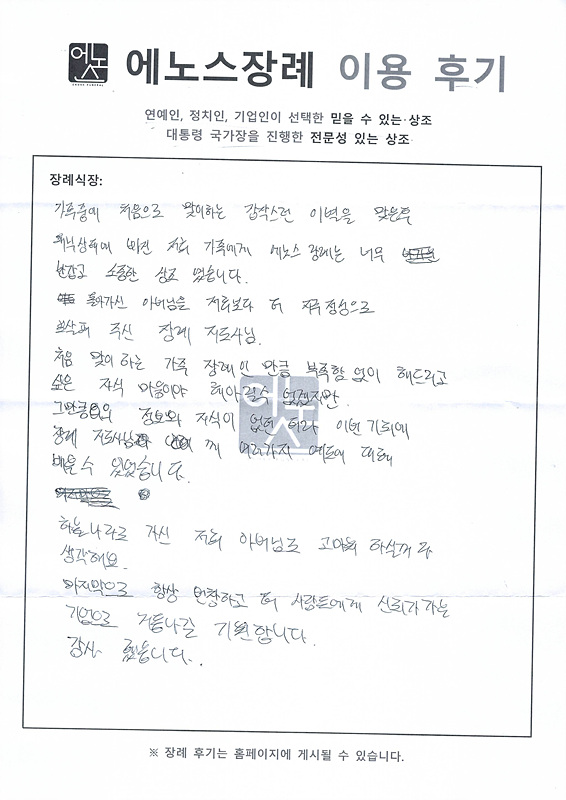 에노스
에노스장례 이용 후기
연예인, 정치인, 기업인이 선택한 믿을 수 있는 상조
대통령 국가장을 진행한 전문성 있는 상조
장례식장:
가족중에 처음으로 맞이하는 갑작스런 이별을 맞은후
빠진 저희 가족에게 에노스 장례는 너무
반갑고 소중한 상조 였습니다.
돌아가신 아버님을 저희보다 더 지극정성으로
보살펴 주신 장례 지도사님.
처음 맞이하는 가족 장례인 만큼 부족함 없이 해드리고
싶은 자식 마음이야 헤아릴수 없겠지만
그만큼의 정보와 지식이 없던 터라 이번 기회에
장례 지도사님 께 여러가지 예도에 대해
배울수 있었습니다.
하늘나라로 가신 저희 아버님도 고마워 하실꺼라
생각해요.
마지막으로 항상 번창하고 더 사람들에게 신뢰가 가는
기업으로 거듭나길 기원합니다.
감사 했습니다..
에노스
※ 장례 후기는 홈페이지에 게시될 수 있습니다.